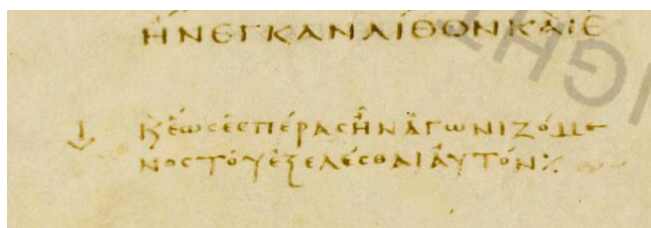 ἬΝΕΓΚΑΝΛΊΘΟΝΚΑῚΕ
↓ ϗἕωςἑσπέραςἦνἀγωνιζόμε
νοςτοῦἐξελέσθαιαὐτόν⁒